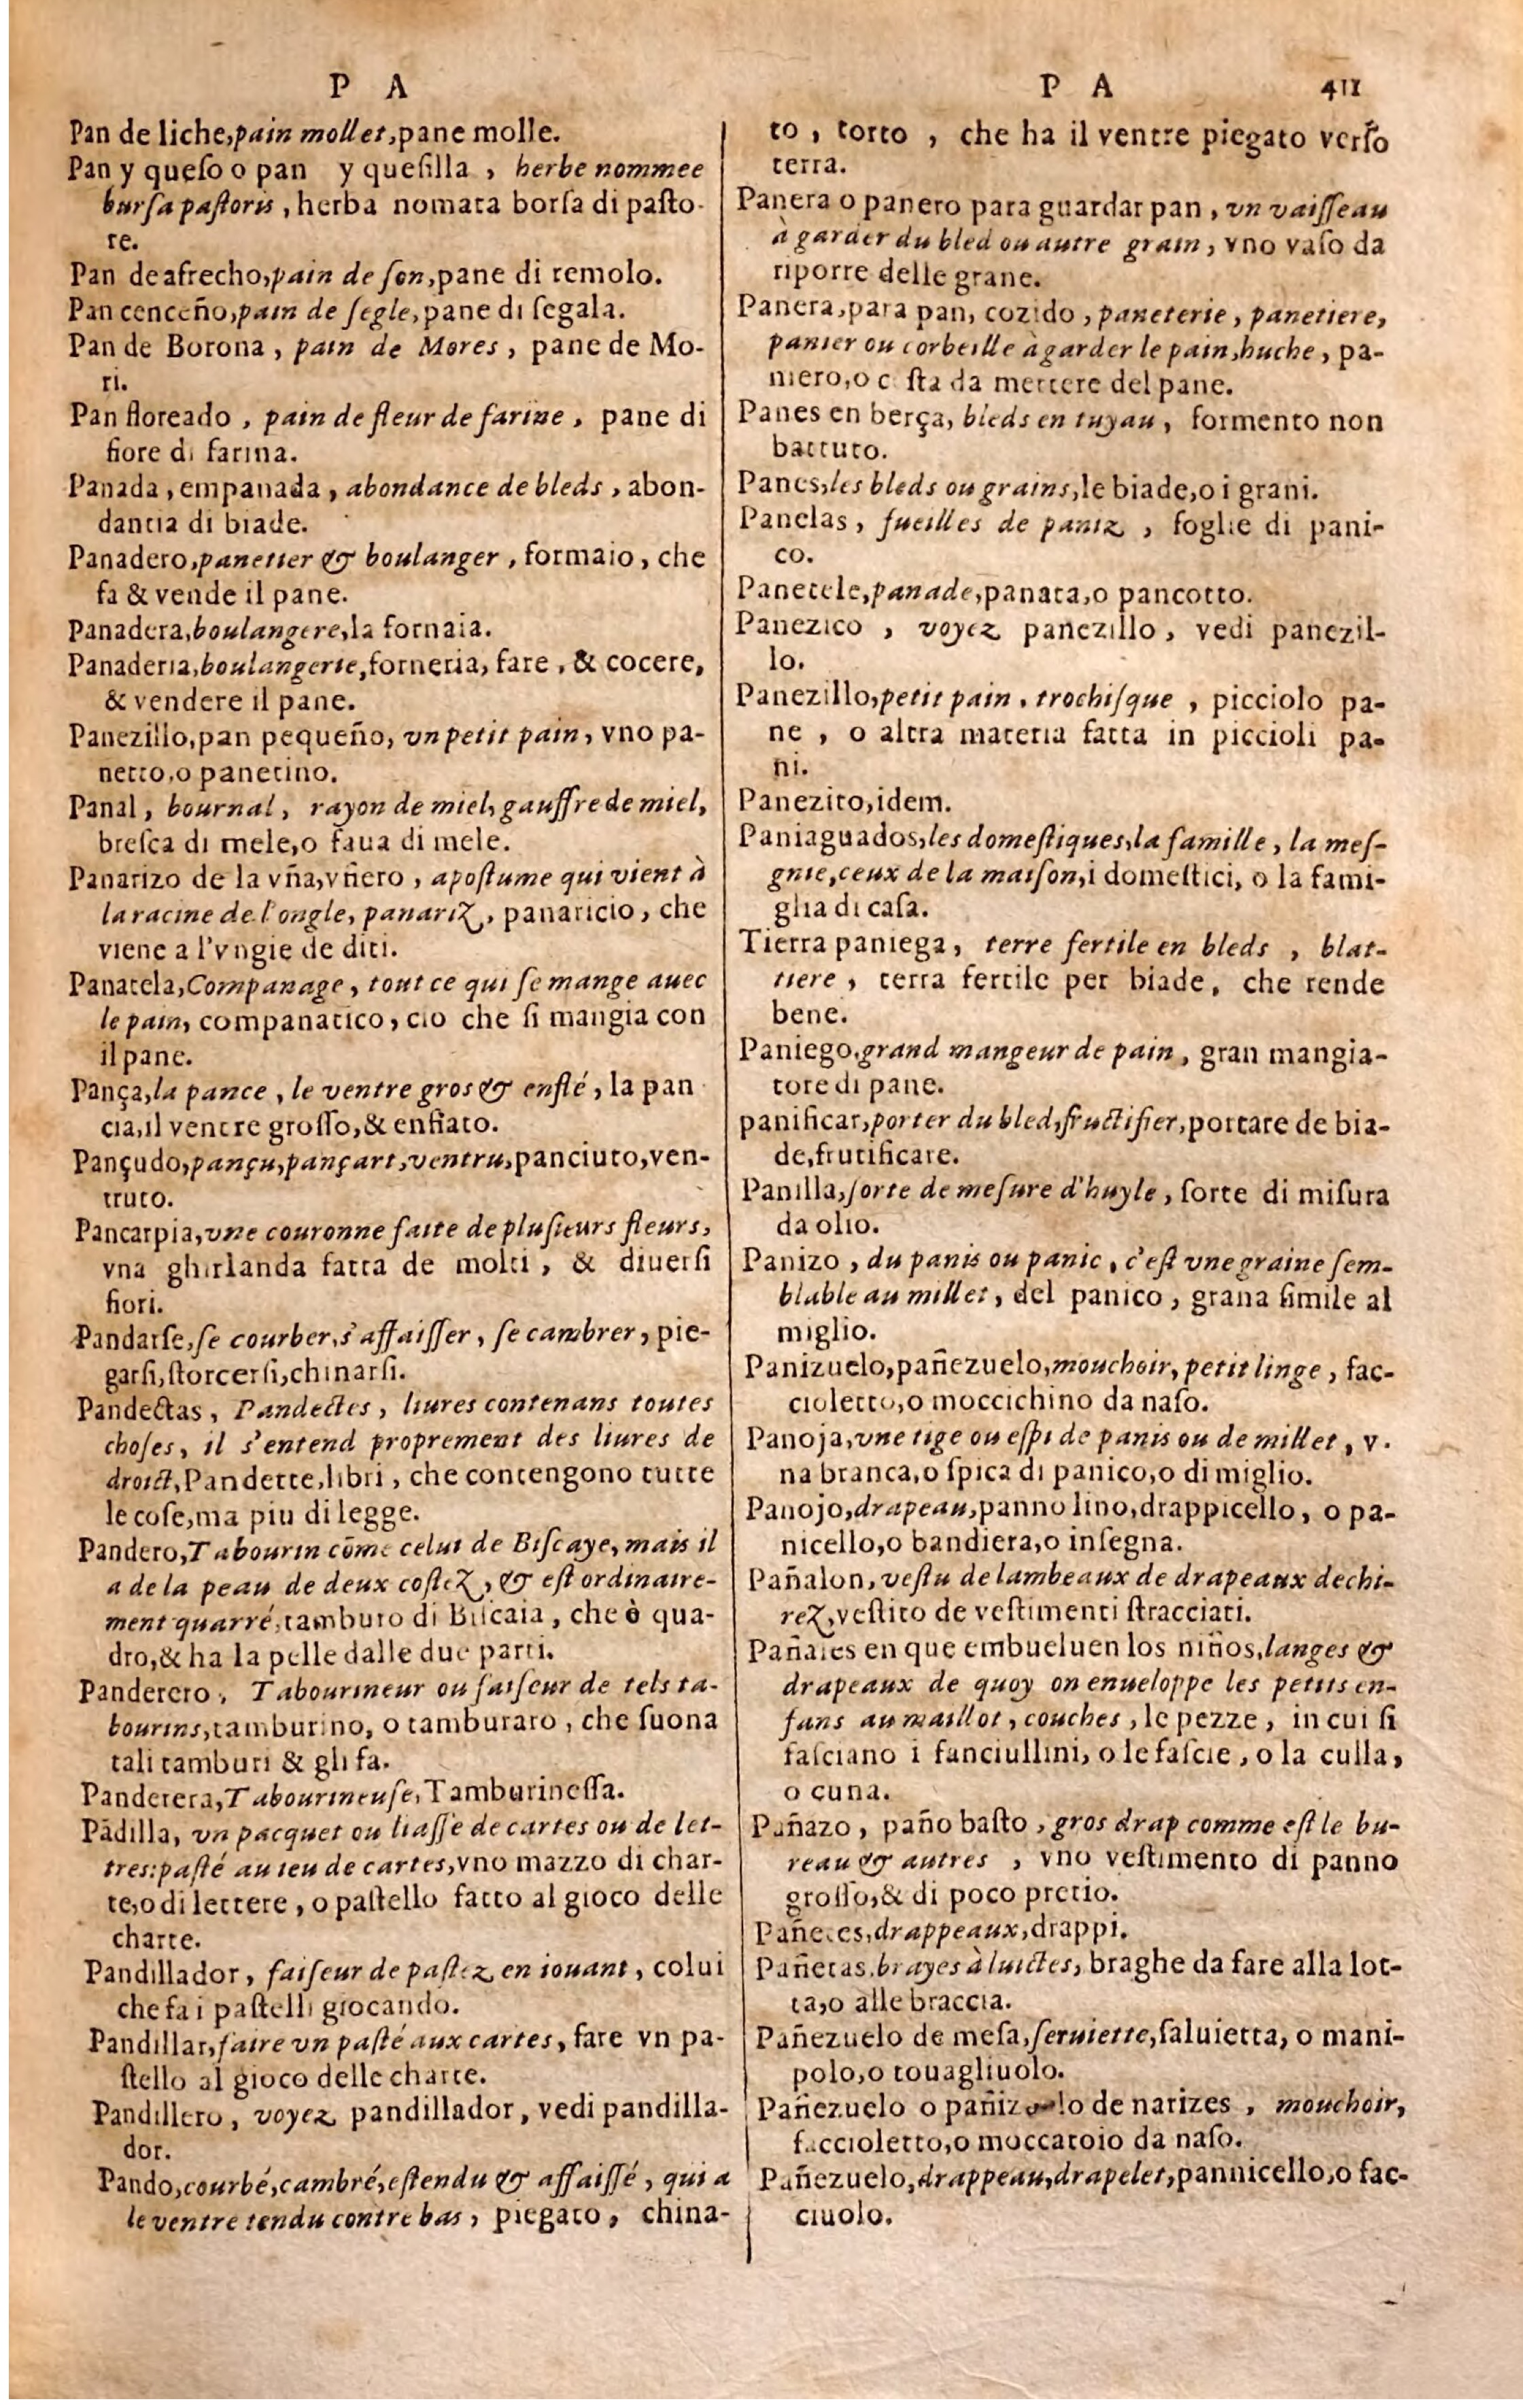 P A
Pan de liche, pain mollet, pane molle.
Pan y queſo o pan y queſilla, herbe nommee
burſa paſtoris, herba nomata borſa di paſto-
re.
Pan de afrecho, pain de ſon, pane di remolo.
Pan cenceño, pain de ſegle, pane di ſegala.
Pan de Borona, pain de Mores, pane de Mo-
ri.
Pan floreado, pain de fleur de farine, pane di
fiore di farina.
Panada, empanada, abondance de bleds, abon-
dantia di biade.
Panadero, panetier & boulanger, formaio, che
fa & vende il pane.
Panadera, boulangere, la fornaia.
Panaderia, boulangerie, forneria, fare, & cocere,
& vendere il pane.
Panezillo, pan pequeño, vn petit pain, vno pa-
netto, o panetino.
Panal, bournal, rayon de miel, gauffre de miel,
breſca di mele, o faua di mele.
Panarizo de la vña, vñero, apoſtume qui vient à
la racine de l'ongle, panariz, panaricio, che
viene a l'vngie de diti.
Panatela, Companage, tout ce qui ſe mange auec
le pain, companatico, cio che ſi mangia con
il pane.
Pança, la pance, le ventre gros & enflé, la pan
cia, il ventre groſſo, & enfiato.
Pançudo, pançu, pançart, ventru, panciuto, ven-
truto.
Pancarpia, vne couronne faite de pluſieurs fleurs,
vna ghirlanda fatta de molti, & diuerſi
fiori.
Pandarſe, ſe courber, s'affaiſſer, ſe cambrer, pie-
garſi, ſtorcerſi, chinarſi.
Pandectas, Pandectes, liures contenans toutes
choſes, il s'entend proprement des liures de
droict, Pandette, libri, che contengono tutte
le coſe, ma piu di legge.
Pandero, Tabourin cõme celui de Biſcaye, mais il
a de la peau de deux coſtez, & eſt ordinaire-
ment quarré, tamburo di Biſcaia, che è qua-
dro, & ha la pelle dalle due parti.
Panderero, Tabourineur ou faiſeur de tels ta-
bourins, tamburino, o tamburaro, che ſuona
tali tamburi & gli fa.
Panderera, Tabourineuſe, Tamburineſſa.
Pãdilla, vn pacquet ou liaſſe de cartes ou de let-
tres: paſté au ieu de cartes, vno mazzo di char-
te, o di lettere, o paſtello fatto al gioco delle
charte.
Pandillador, faiſeur de paſtez en iouant, colui
che fa i paſtelli giocando.
Pandillar, faire vn paſté aux cartes, fare vn pa-
ſtello al gioco delle charte.
Pandillero, voyez pandillador, vedi pandilla-
dor.
Pando, courbé, cambré, eſtendu & affaiſſé, qui a
le ventre tendu contre bas, piegato, china-
P A 411
to, torto, che ha il ventre piegato verſo
terra.
Panera o panero para guardar pan, vn vaiſſeau
à garder du bled ou autre grain, vno vaſo da
riporre delle grane.
Panera, para pan, cozido, paneterie, panetiere,
panier ou corbeille à garder le pain, huche, pa-
niero, o c ſta da mettere del pane.
Panes en berça, bleds en tuyau, formento non
battuto.
Panes, les bleds ou grains, le biade, o i grani.
Panelas, fueilles de paniz, foglie di pani-
co.
Panetele, panade, panata, o pancotto.
Panezico, voyez panezillo, vedi panezil-
lo.
Panezillo, petit pain, trochiſque, picciolo pa-
ne, o altra materia fatta in piccioli pa-
ni.
Panezito, idem.
Paniaguados, les domeſtiques, la famille, la meſ-
gnie, ceux de la maiſon, i domeſtici, o la fami-
glia di caſa.
Tierra paniega, terre fertile en bleds, blat-
tiere, terra fertile per biade, che rende
bene.
Paniego, grand mangeur de pain, gran mangia-
tore di pane.
panificar, porter du bled, fructifier, portare de bia-
de, frutificare.
Panilla, ſorte de meſure d'huyle, ſorte di miſura
da olio.
Panizo, du panis ou panic, c'eſt vne graine ſem-
blable au millet, del panico, grana ſimile al
miglio.
Panizuelo, pañezuelo, mouchoir, petit linge, fac-
cioletto, o moccichino da naſo.
Panoja, vne tige ou eſpi de panis ou de millet, v.
na branca, o ſpica di panico, o di miglio.
Panojo, drapeau, panno lino, drappicello, o pa-
nicello, o bandiera, o inſegna.
Pañalon, veſtu de lambeaux de drapeaux dechi-
rez, veſtito de veſtimenti ſtracciati.
Pañales en que embueluen los niños, langes &
drapeaux de quoy on enueloppe les petits en-
fans au maillot, couches, le pezze, in cui ſi
faſciano i fanciullini, o le faſcie, o la culla,
o cuna.
Pañazo, paño baſto, gros drap comme eſt le bu-
reau & autres, vno veſtimento di panno
groſſo, & di poco pretio.
Pañetes, drappeaux, drappi.
Pañetas, brayes à luictes, braghe da fare alla lot-
ta, o alle braccia.
Pañezuelo de meſa, ſeruiette, ſaluietta, o mani-
polo, o touagliuolo.
Pañezuelo o pañizuelo de narizes, mouchoir,
faccioletto, o moccatoio da naſo.
Pañezuelo, drappeau, drapelet, pannicello, o fac-
ciuolo.